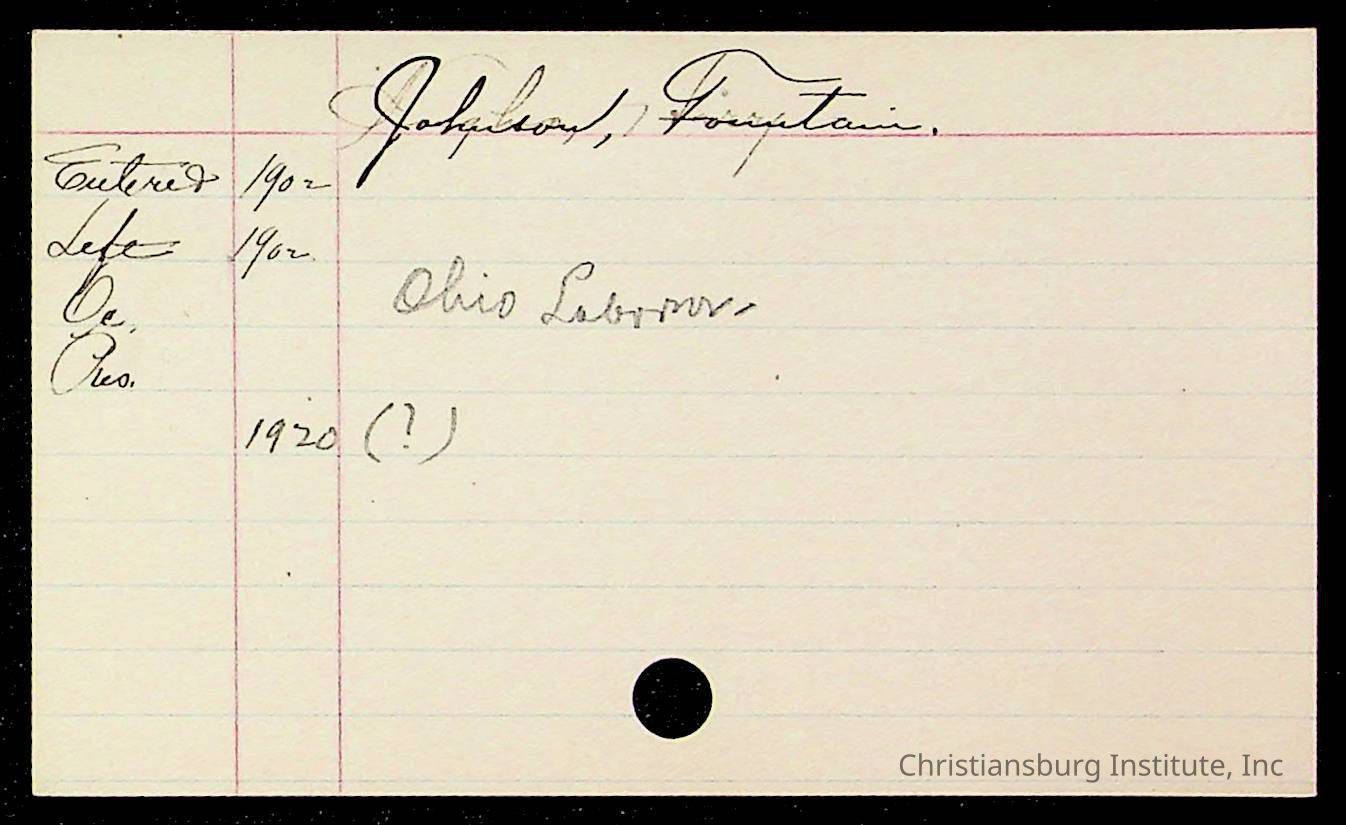 Johnson, Fountain.
Entered 1902
Left 1902
Oc. Ohio Laborer
Pres.
1920 (?)
Christiansburg Institute, Inc